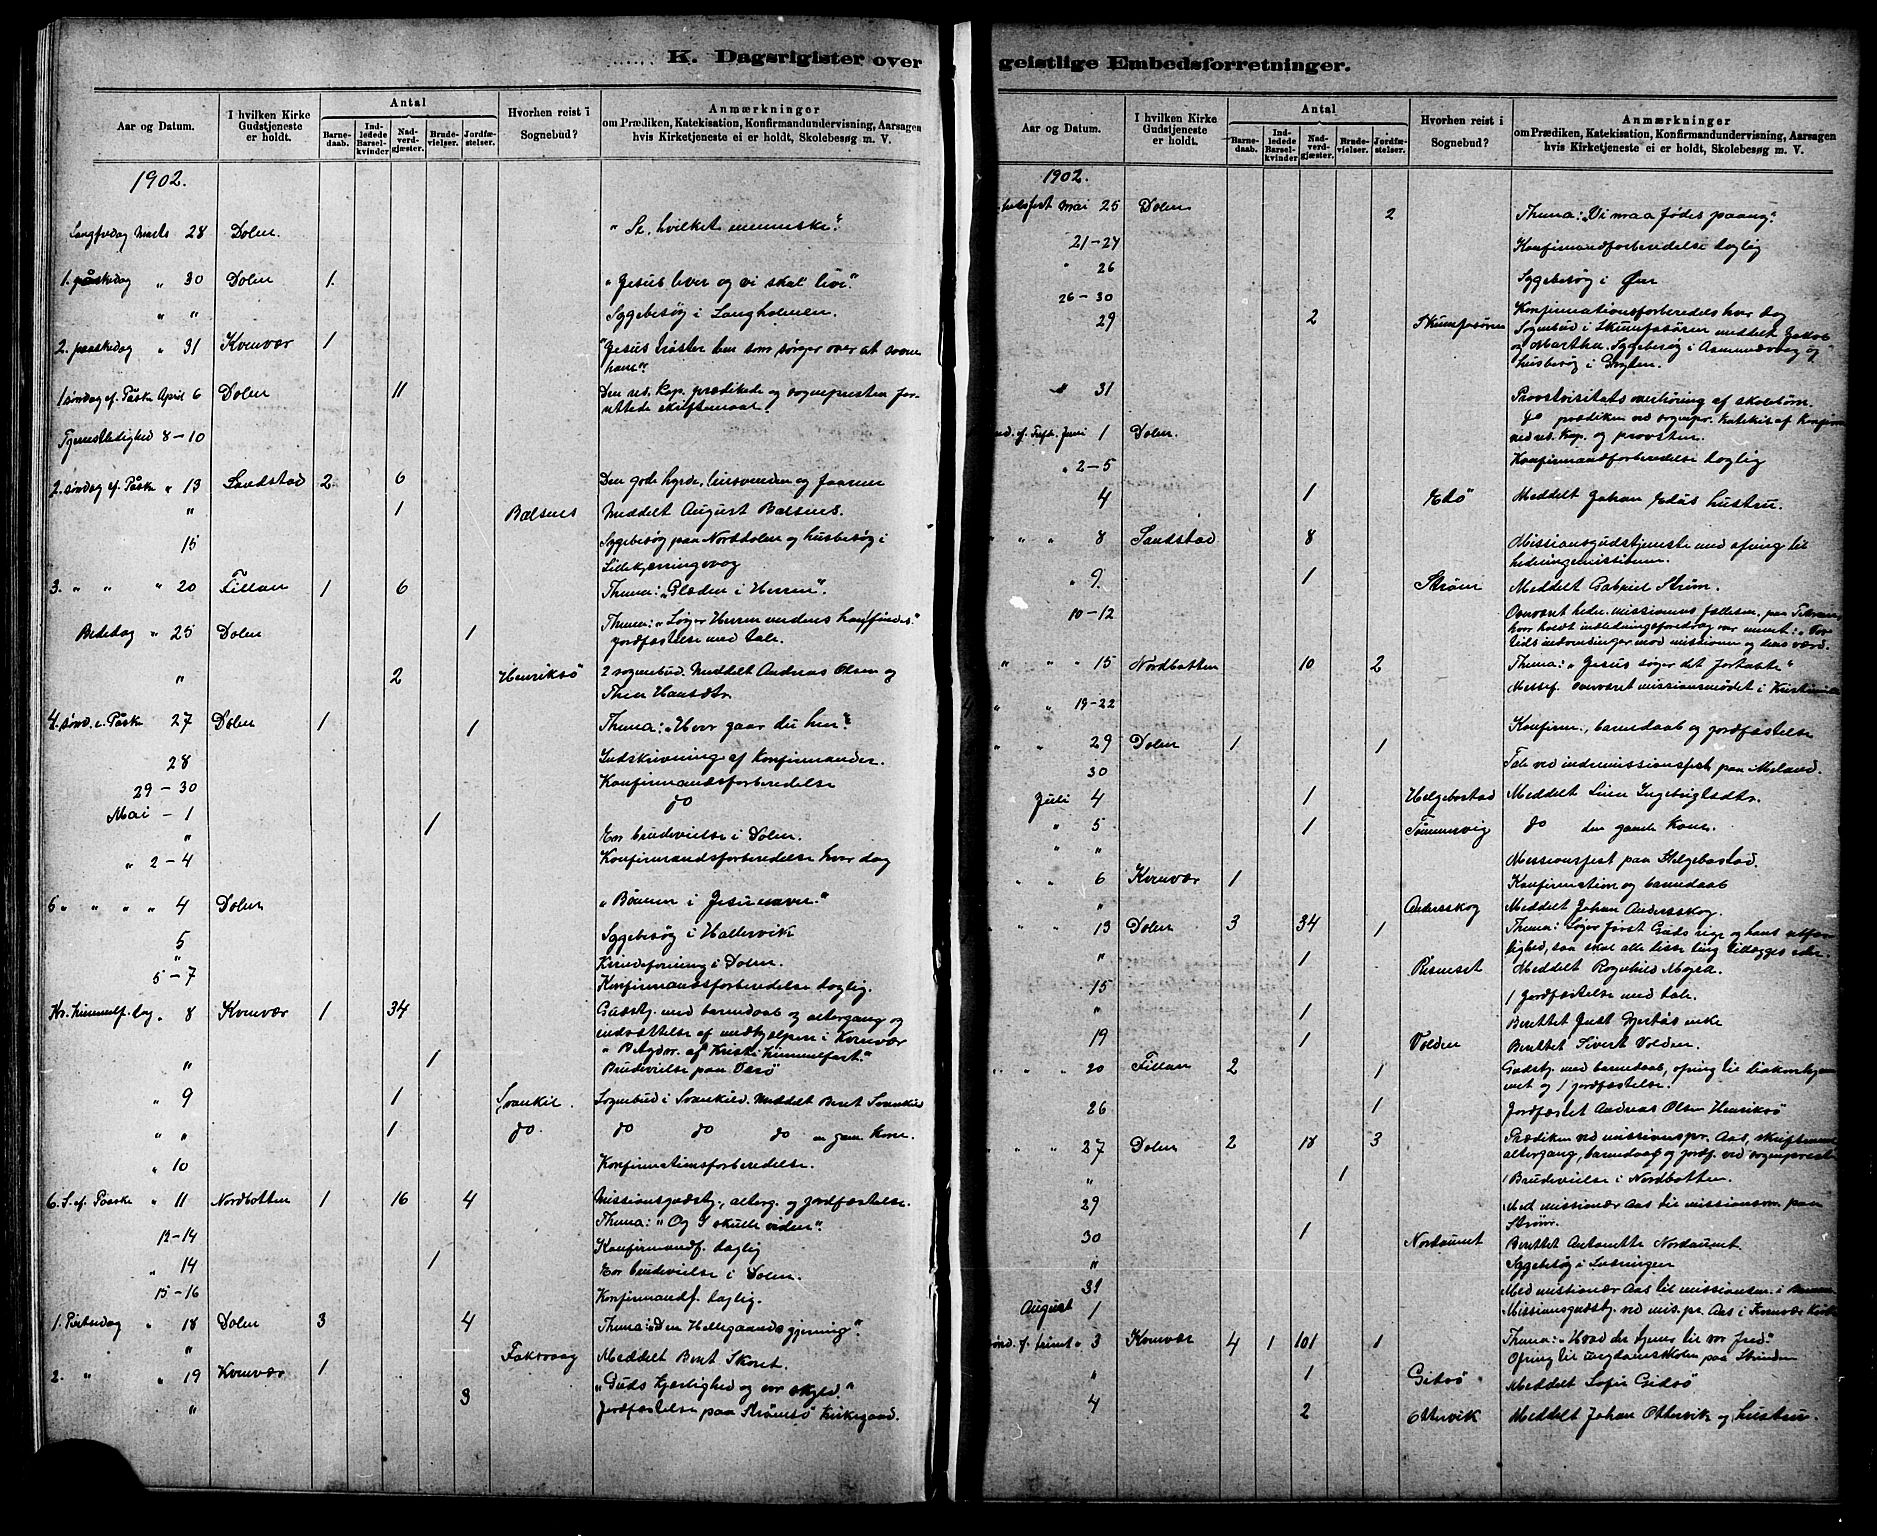 K. Dagsrigister over
Aar og Datum.
I hvilken Kirke Gudstjeneste er holdt.
Antal
Barne-daab.
Ind-ledede Barsel-kvinder
Nad-verd-gjæster.
Brude-vielser.
Jordfæ-stelser.
Hvorhen reist i Sognebud?
Anmærkninger
om Prædiken, Katekisation, Konfirmandundervisning, Aarsagen
hvis Kirketjeneste ei er holdt, Skolebesøg m. V.
1902.
Langfredag Marts 28 Dolen. "Se, hvilket menneske."
1. paaskedag " 30 Dolen 1. "Jesus lever og vi skal leve."
" " Sygebesøg i Langholmen.
2. paaskedag " 31 Kvenvær 1 "Jesus trøster den som sørger over at savne
ham"
1 søndag ef. Påske April 6 Dolen 11 Den red. Kap. prædikede og sognepresten for-
rettede skriftemaal
Tjenestledighed 8-10
2. søndag ef. Påske " 13 Sandstad 2. 6 Den gode hyrde, leiesvenden og faarene
" 1 Balsnes Meddelt August Balsnes.
15 Sygebesøg paa Norddolen og husbesøg i
Lillekjerringvaag
3. " " " 20 Fillan 1 6 Thema: "Glæden i Herren".
Bededag " 25 Dolen 1 Thema: "Søger Herren medens han findes"
jordfæstelse med tale.
" 2 Henriksø 2 sognebud. Meddelt Andreas Olsen og
Hansdtr
4. sønd. e. Påske 27 Dolen 1 1 Thema: "Hvor gaar du hen"
28 Indskrivning af Konfirmander.
29-30 Konfirmandsforberedelse
Mai - 1 do
" 1 En brudevielse i Dolen.
" 2-4 Konfirmandsforberedelse hver dag
" " " 4 Dolen "Bønnen i Jesu navn."
5 Sygebesøg i Hallervik
" i Dolen.
5-7 Konfirmandsforberedelse daglig.
Kr. himmelf. dag " 8 Kvenvær 1 34 Gudstj. med barnedaab og altergang og
indsættelse af medhjælpere i Kvenvær
"Betydn. af Kristi himmelfart."
" 1 Brudevielse paa
" 9 1 Svankil. Sognebud i Svankild. Meddelt Beret Svankild
" " 1 do. do do do en gam. Kone.
" 10 Konfirmationsforberedelse.
6. S. ef. Paaske " 11 Nordbotten 1 16 4 Missionsgudstj., alterg. og jordfæstelse.
Thema: "Og I skulle vidne".
12-14 Konfirmandf. daglig
" 14 1 En brudevielse i Dolen.
15-16 Konfirmandf. daglig.
1. Pintsedag " 18 Dolen 3 4 Thema: "Den Helligaands gjerning".
" Fakvaag Meddelt Beret Skoret.
2. " " 19 Kvenvær 1 "Guds kjærlighed og vor skyld."
" 3 Jordfæstelse paa Strømsø kirkegaard.
geistlige Embedsforretninger.
Aar og Datum.
I hvilken Kirke Gudstjeneste er holdt.
Antal
Barne-daab.
Ind-ledede Barsel-kvinder
Nad-verd-gjæster.
Brude-vielser.
Jordfæ-stelser.
Hvorhen reist i Sognebud?
Anmærkninger
om Prædiken, Katekisation, Konfirmandundervisning, Aarsagen
hvis Kirketjeneste ei er holdt, Skolebesøg m. V.
1902.
Mai 25 Dolen 2 Thema: "Vi maa fødes paany."
21-24 Konfirmandforberedelse daglig
" 26 Sygebesøg i Øen
26-30 Konfirmationsforberedels hver dag
29 2 Sognebud i meddelt Jakob
og Martha. Sygebesøg i Asmundvaag og
husbesøg i
" 31 Provstvisitats overhøring af skolebørn.
Juni 1 Dolen. do prædiken ved sognepr. Katekis. af Konfirm.
ved red. Kap. og provsten.
" 2-5 Konfirmandforberedelse daglig
4 1 Edø Meddelt Johan Edøs hustru.
" " " 8 Sandstad 8 Missionsgudstjeneste med ofring til
hedningemissionen.
" 9. 1 Strøm Meddelt Gabriel Strøm.
10-12 Overværet hedn. missionens fællesm. paa
hvor holdt indledningsforedrag over emnet:
tids indvendinger mod missionen og dens værd.
" " " 15 Nordbotten 10 2 Thema: "Jesus søger det fortabte"
" " 19-22 overværet missionsmødet i Kristiania
" " 29 Dolen 1 1 Konfirm., barnedaab og jordfæstelse
30 Tale ved indremissionsfest paa Meland.
Juli 4 1 Helgebostad Meddelt Ingebrigtsdtr.
" 5 1 Tømmervig do den gamle Kone.
" " Missionsfest paa Helgebostad.
" " 6 Kvenvær 1 Konfirmation og barnedaab
" Andersskog Meddelt Johan Andersskog.
" " 13 Dolen 3 34 1 Thema: Søger først Guds rige og hans retfær-
dighed, saa skal alle disse ting tillægges eder.
" 1 Meddelt Ragnhild
15 1 jordfæstelse med tale.
" 1 Berettet enke
19 1 Volden Berettet Sivert Volden.
" " " 20 Fillan 2 1 Gudstj. med barnedaab, ofring til diakonhjem-
met og 1 jordfæstelse.
26 1 Jordfæstet Andreas Olsen Henriksø
" " " 27 Dolen 2 18 3 Prædiken ved missionspr. Aas, skriftemaal
altergang, barnedaab og jordf. ved sognepresten
" 1 1 Brudevielse i Nordbotten
29 Med missionær Aas til missionsm. paa
Strøm.
30 1 Nordaunet Berettet Antonette Nordaunet.
" Sygebesøg i
31 Med missionær Aas til missionsm. i
August 1 Missionsgudstj. ved mis.pr. Aas i Kvenvær Kirke
" 3 Kvenvær 4 1 101 1 Thema: "Hvad der tjener til vor fred."
Ofring til ungdomsskolen paa Strinden
" 1 Gidsø Meddelt Sofie Gidsø
4 2 Ottervik Meddelt Johan Ottervik og hustru.